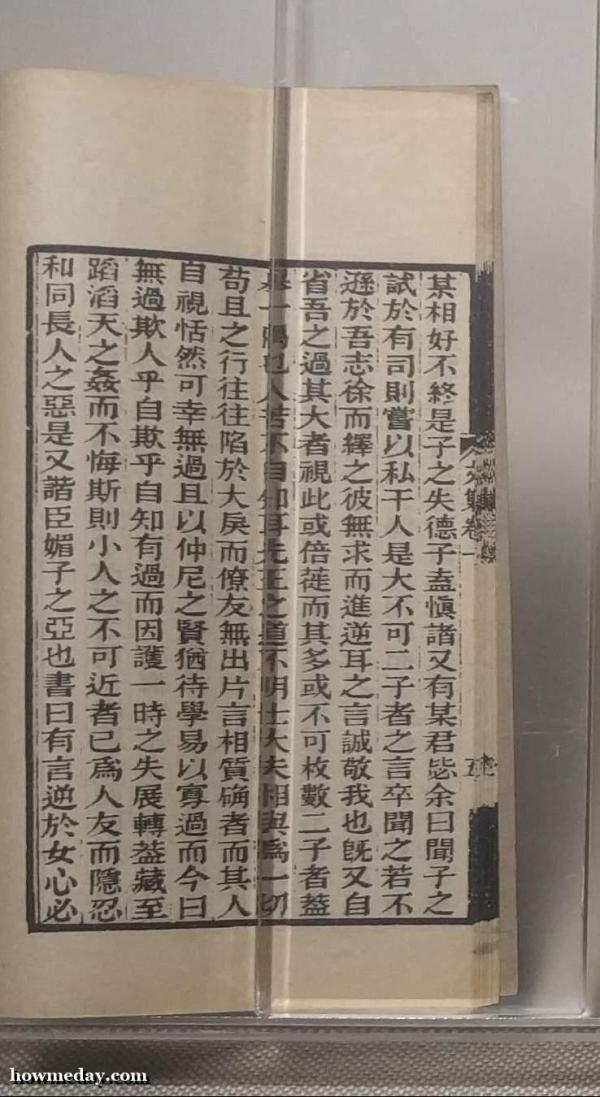 某相好不終是子之失德子盍慎諸又有某君毖余曰聞子之
試於有司則嘗以私干人是大不可二子者之言卒聞之若不
遜於吾志徐而繹之彼無求而進逆耳之言誠敬我也旣又自
省吾之過其大者視此或倍蓰而其多或不可枚數二子者葢
舉一隅也人苦不自知耳先王之道不明士大夫相與爲一切
苟且之行往往陷於大戾而僚友無出片言相質确者而其人
自視恬然可幸無過且以仲尼之賢猶待學易以寡過而今曰
無過欺人乎自欺乎自知有過而因護一時之失展轉葢藏至
蹈滔天之姦而不悔斯則小人之不可近者已爲人友而隱忍
和同長人之惡是又諧臣媚子之亞也書曰有言逆於女心必
文集卷一
五
howmeday.com